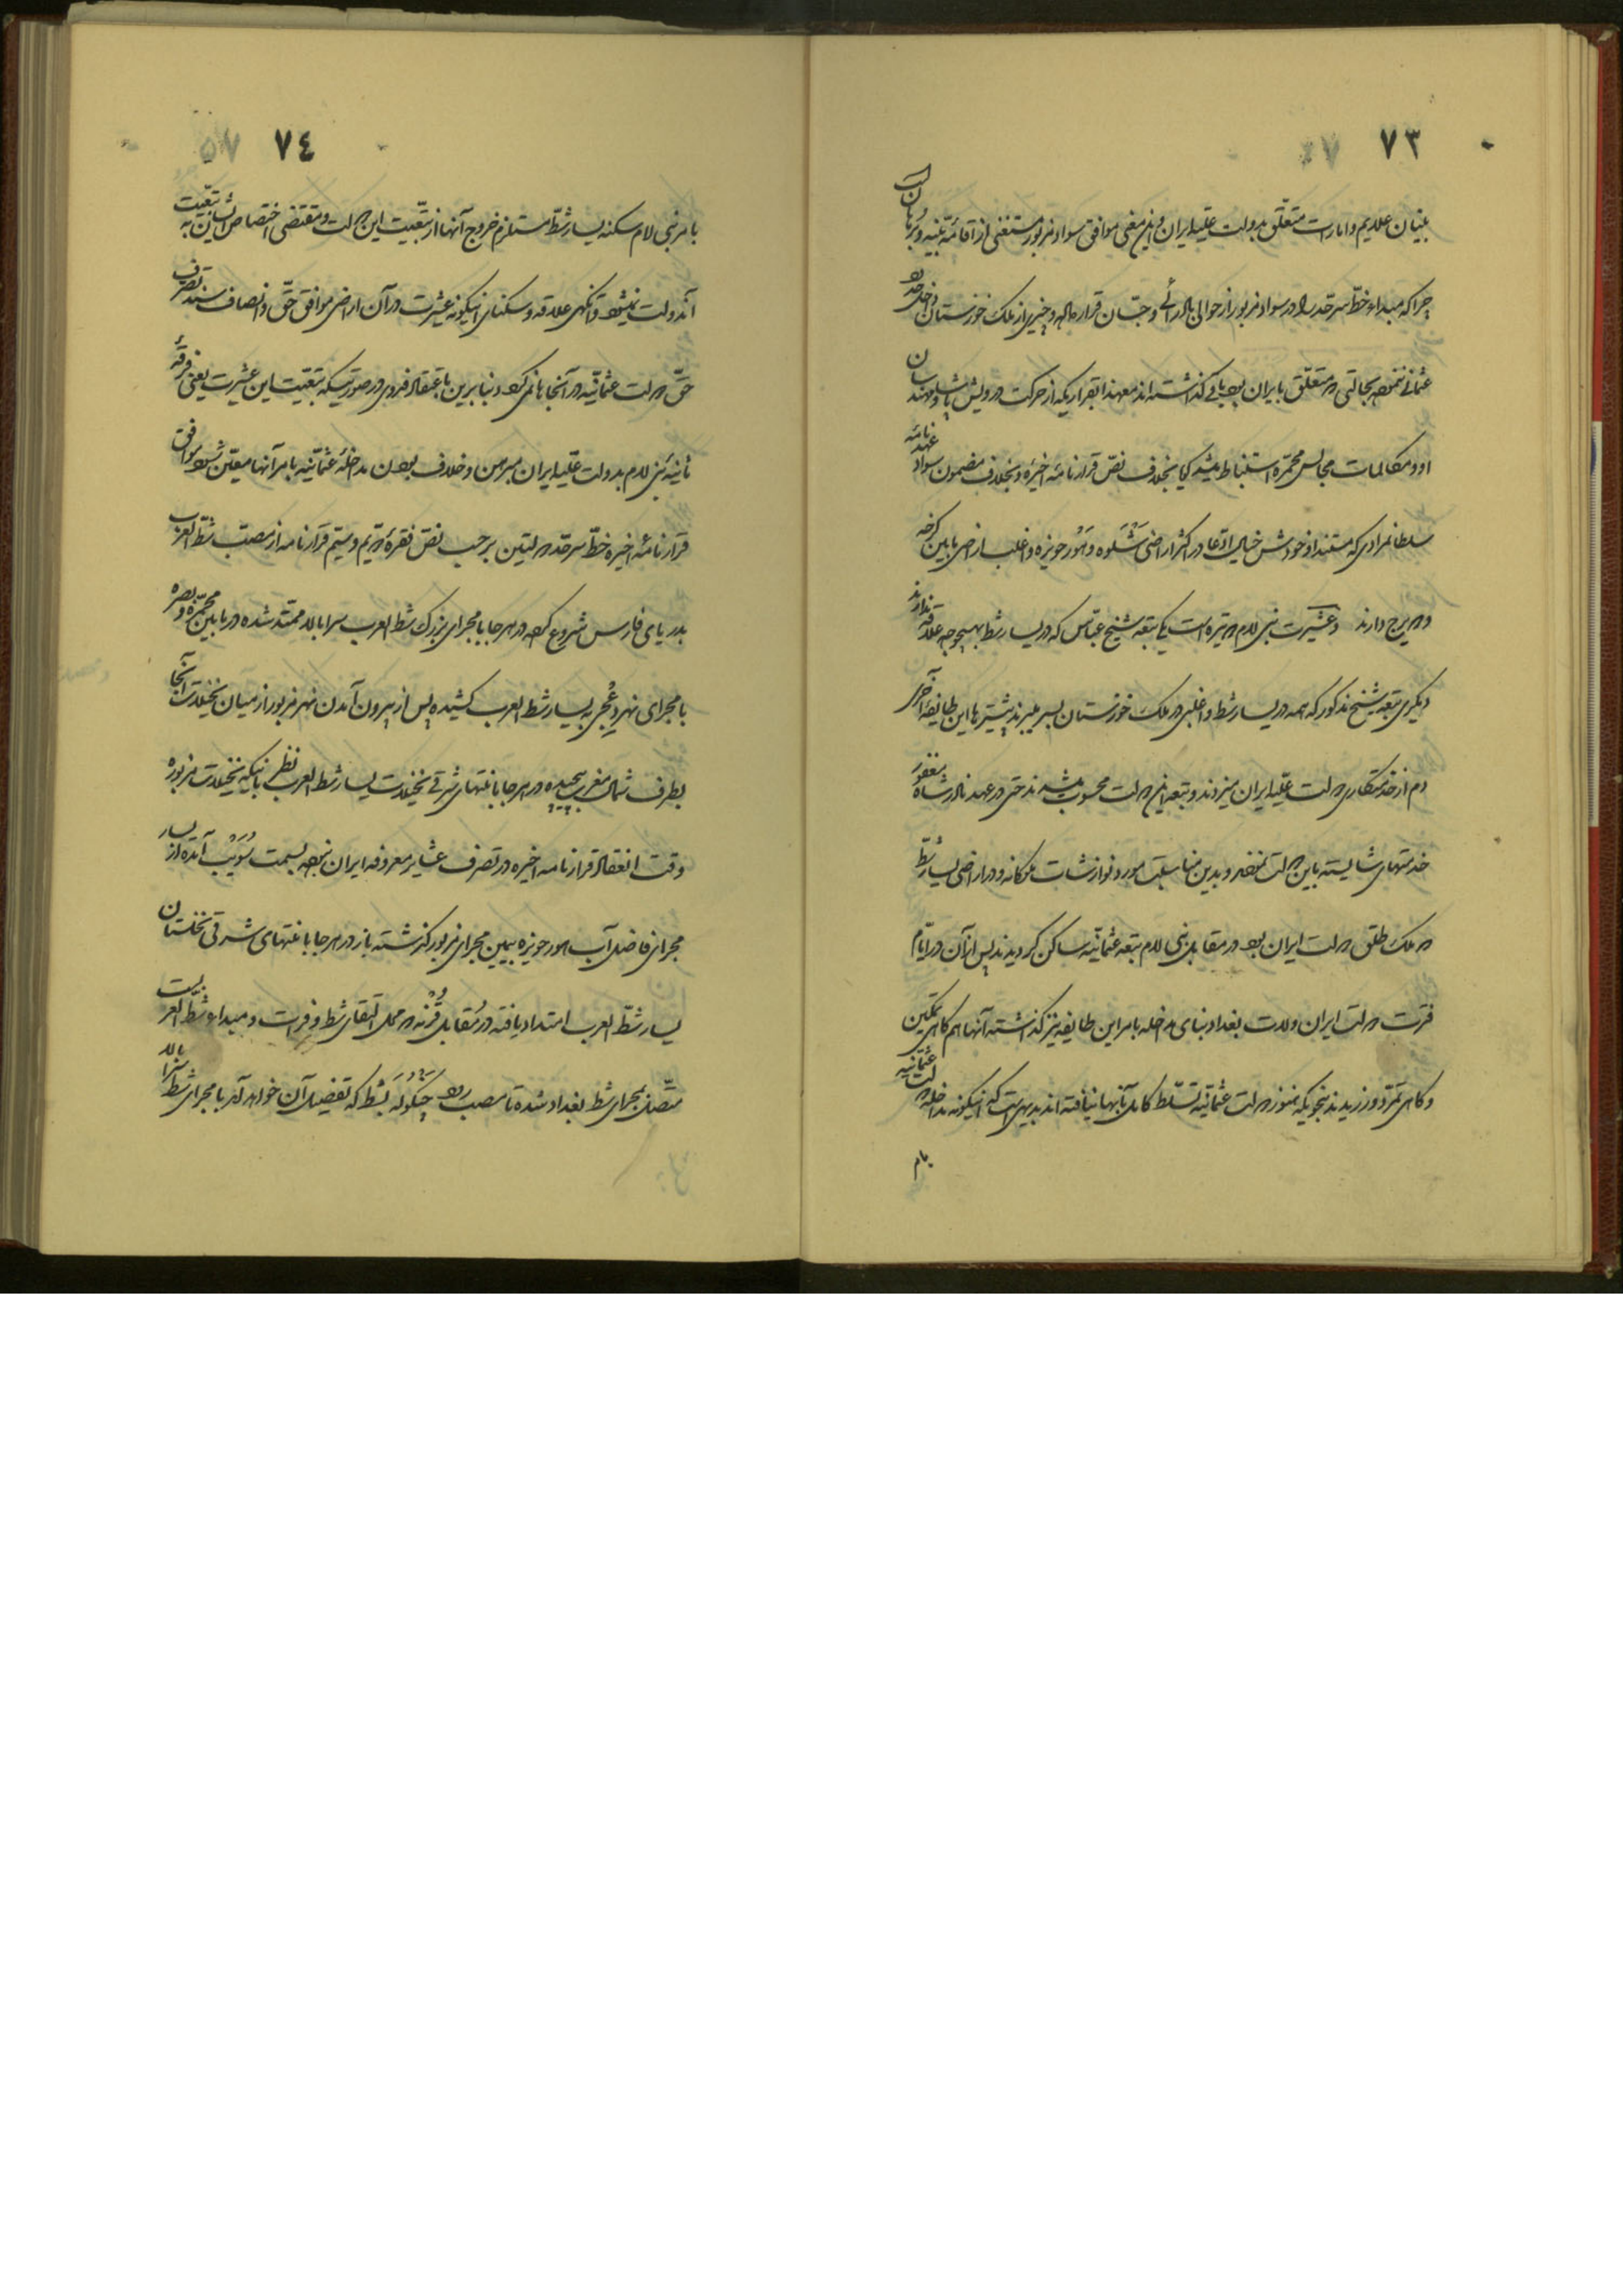 ٧٣
بنیان علایم و امارات متعلق بدولت علیه ایران و این معنی موافق سواد مزبور مستغنی از اقامهٔ بینه و برهان است
چرا که مبداء خط سرحد را در سواد مزبور از حوالی بادرائی و جسّان قرار داده و چیزی از ملک خوزستان داخل حدود
عثمانی ننموده بحالتی که متعلق بایران بود باقی گذاشته‌اند معهذا بقراریکه از حرکت درویش پاشا و مهندسان
او و مکالمات مجالس محمره استنباط میشد گویا بخلاف نص قرارنامهٔ اخیره و بخلاف مضمون سواد عهدنامهٔ
سلطانمرادی که مستند او خودش خیال ادعا در اکثر اراضی شَنْسَلوه و هَوْر حویزه و اغلب اراضی مابین کرخه
و دویرج دارند و عشیرت بنی لام دو تیره است یکی تبعه شیخ عباس که در یسار شط بهیچوجه علاقه ندارند
دیگری تبعه شیخ مذکور که همه در یسار شط و اغلبی در ملک خوزستان بسر میبرند پیشترها این طایفهٔ آخری
دم از خدمتکاری دولت علیه ایران میزدند و تبعه این دولت محسوب میشدند حتی در عهد نادرشاه مغفور
خدمتهای شایسته باین دولت نموده و بدین مناسبت مورد نوازشات ملوکانه و در اراضی یسار شط
که ملک طلق دولت ایران بود در مقابل بنی لام تبعه عثمانیه ساکن گردیدند پس از آن در ایام
فترت دولت ایران ولات بغداد بنای مداخله بامر این طایفه نیز گذاشته آنها هم گاهی تمکین
و گاهی تمرد ورزیدند بنحویکه هنوز دولت عثمانیه تسلط کامل بآنها نیافته‌اند بدیهی است که اینگونه مداخله دولت عثمانیه
بامر
٧٤
بامر بنی لام سکنه یسار شط مستلزم خروج آنها از تبعیت این دولت و مقتضی اختصاص ایشان به تبعیت
آندولت نمیشود و آنگهی علاقه و سکنای اینگونه عشیرت در آن اراضی موافق حق و انصاف سند تصرف
حق دولت عثمانیه در آنجاها نمیگردد بنابرین باعتقاد فدوی در صورتیکه تبعیت این عشیرت یعنی فرقهٔ
ثانیه بنی لام بدولت علیه ایران مبرهن و خلاف بودن مداخلهٔ عثمانیه بامر آنها معین شود موافق
قرارنامهٔ اخیره خط سرحد دولتین بر حسب نص فقرهٔ دویم و سیم قرارنامه از مصب شط العرب
بدریای فارس شروع کرده در همه‌جا با مجرای بزرگ شط العرب سرابالا ممتد شده در مابین محمره و بصره
با مجرای نهر دعیجی به یسار شط العرب کشیده پس از بیرون آمدن نهر مزبور از میان نخیلات آنجا
بطرف شمال مغرب پیچیده در همه‌جا با انتهای شرقی نخیلات یسار شط العرب نظر باینکه نخیلات مزبوره
وقت انعقاد قرارنامه اخیره در تصرف عشایر معروفه ایران نبوده بسمت سُوَیْب آمده از یسار
مجرای فاضل آب هور حویزه بیمین مجرای مزبور گذشته باز در همه‌جا با انتهای شرقی نخلستان
یسار شط العرب امتداد یافته در مقابل قُرْنه که محل التقای شط و فرات و مبداء شط العرب است
متصل بمجرای شط بغداد شده تا مصب رود چَنگُولَه بشط که تفصیل آن خواهد آمد با مجرای شط سرابالا